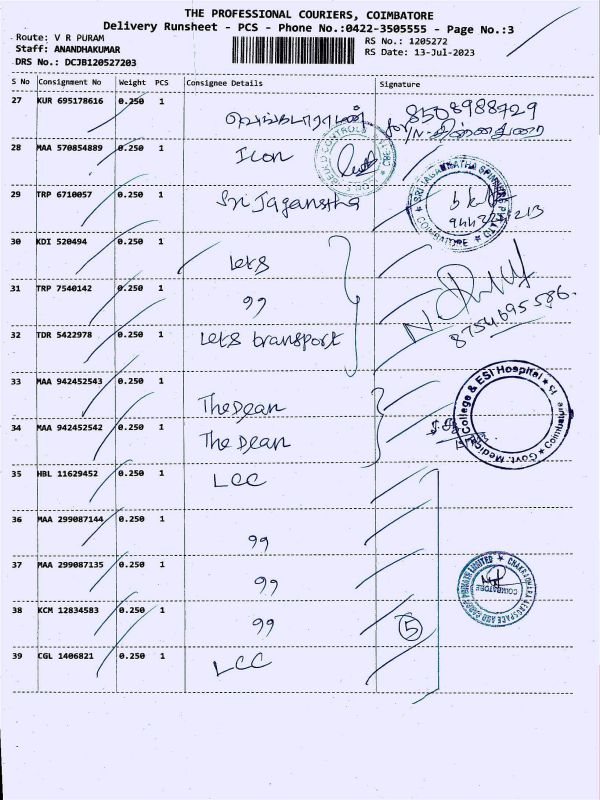 THE PROFESSIONAL COURIERS, COIMBATORE
Delivery Runsheet - PCS - Phone No.:0422-3505555 - Page No.:3
Route: V R PURAM
RS No.: 1205272
Staff: ANANDHAKUMAR
RS Date: 13-Jul-2023
DRS No.: DCJB120527203
S No Consignment No Weight PCS Consignee Details Signature
27 KUR 695178616 0.250 1 வெங்கடாராமன் for 8508988729
28 MAA 570854889 0.250 1 Icon
29 TRP 6710057 0.250 1 Sri Jaganatha
COIMBATORE
30 KDI 520494 0.250 1 Leks
31 TRP 7540142 0.250 1 99
8754695586
32 TDR 5422978 0.250 1 Leks transport
33 MAA 942452543 0.250 1 The Dean
34 MAA 942452542 0.250 1 The Dean
Govt. Medical College & ESI Hospital * 15 Coimbatore
35 HBL 11629452 0.250 1 LCC
36 MAA 299087144 0.250 1 99
37 MAA 299087135 0.250 1 99
COIMBATORE
38 KCM 12834583 0.250 1 99 5
39 CGL 1406821 0.250 1 LCC